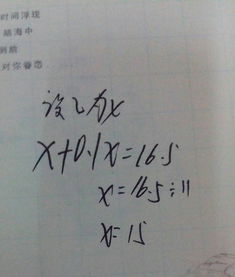 时间浮现
脑海中
对你眷恋
设乙为x
x+0.1x=16.5
x=16.5÷11
x=15